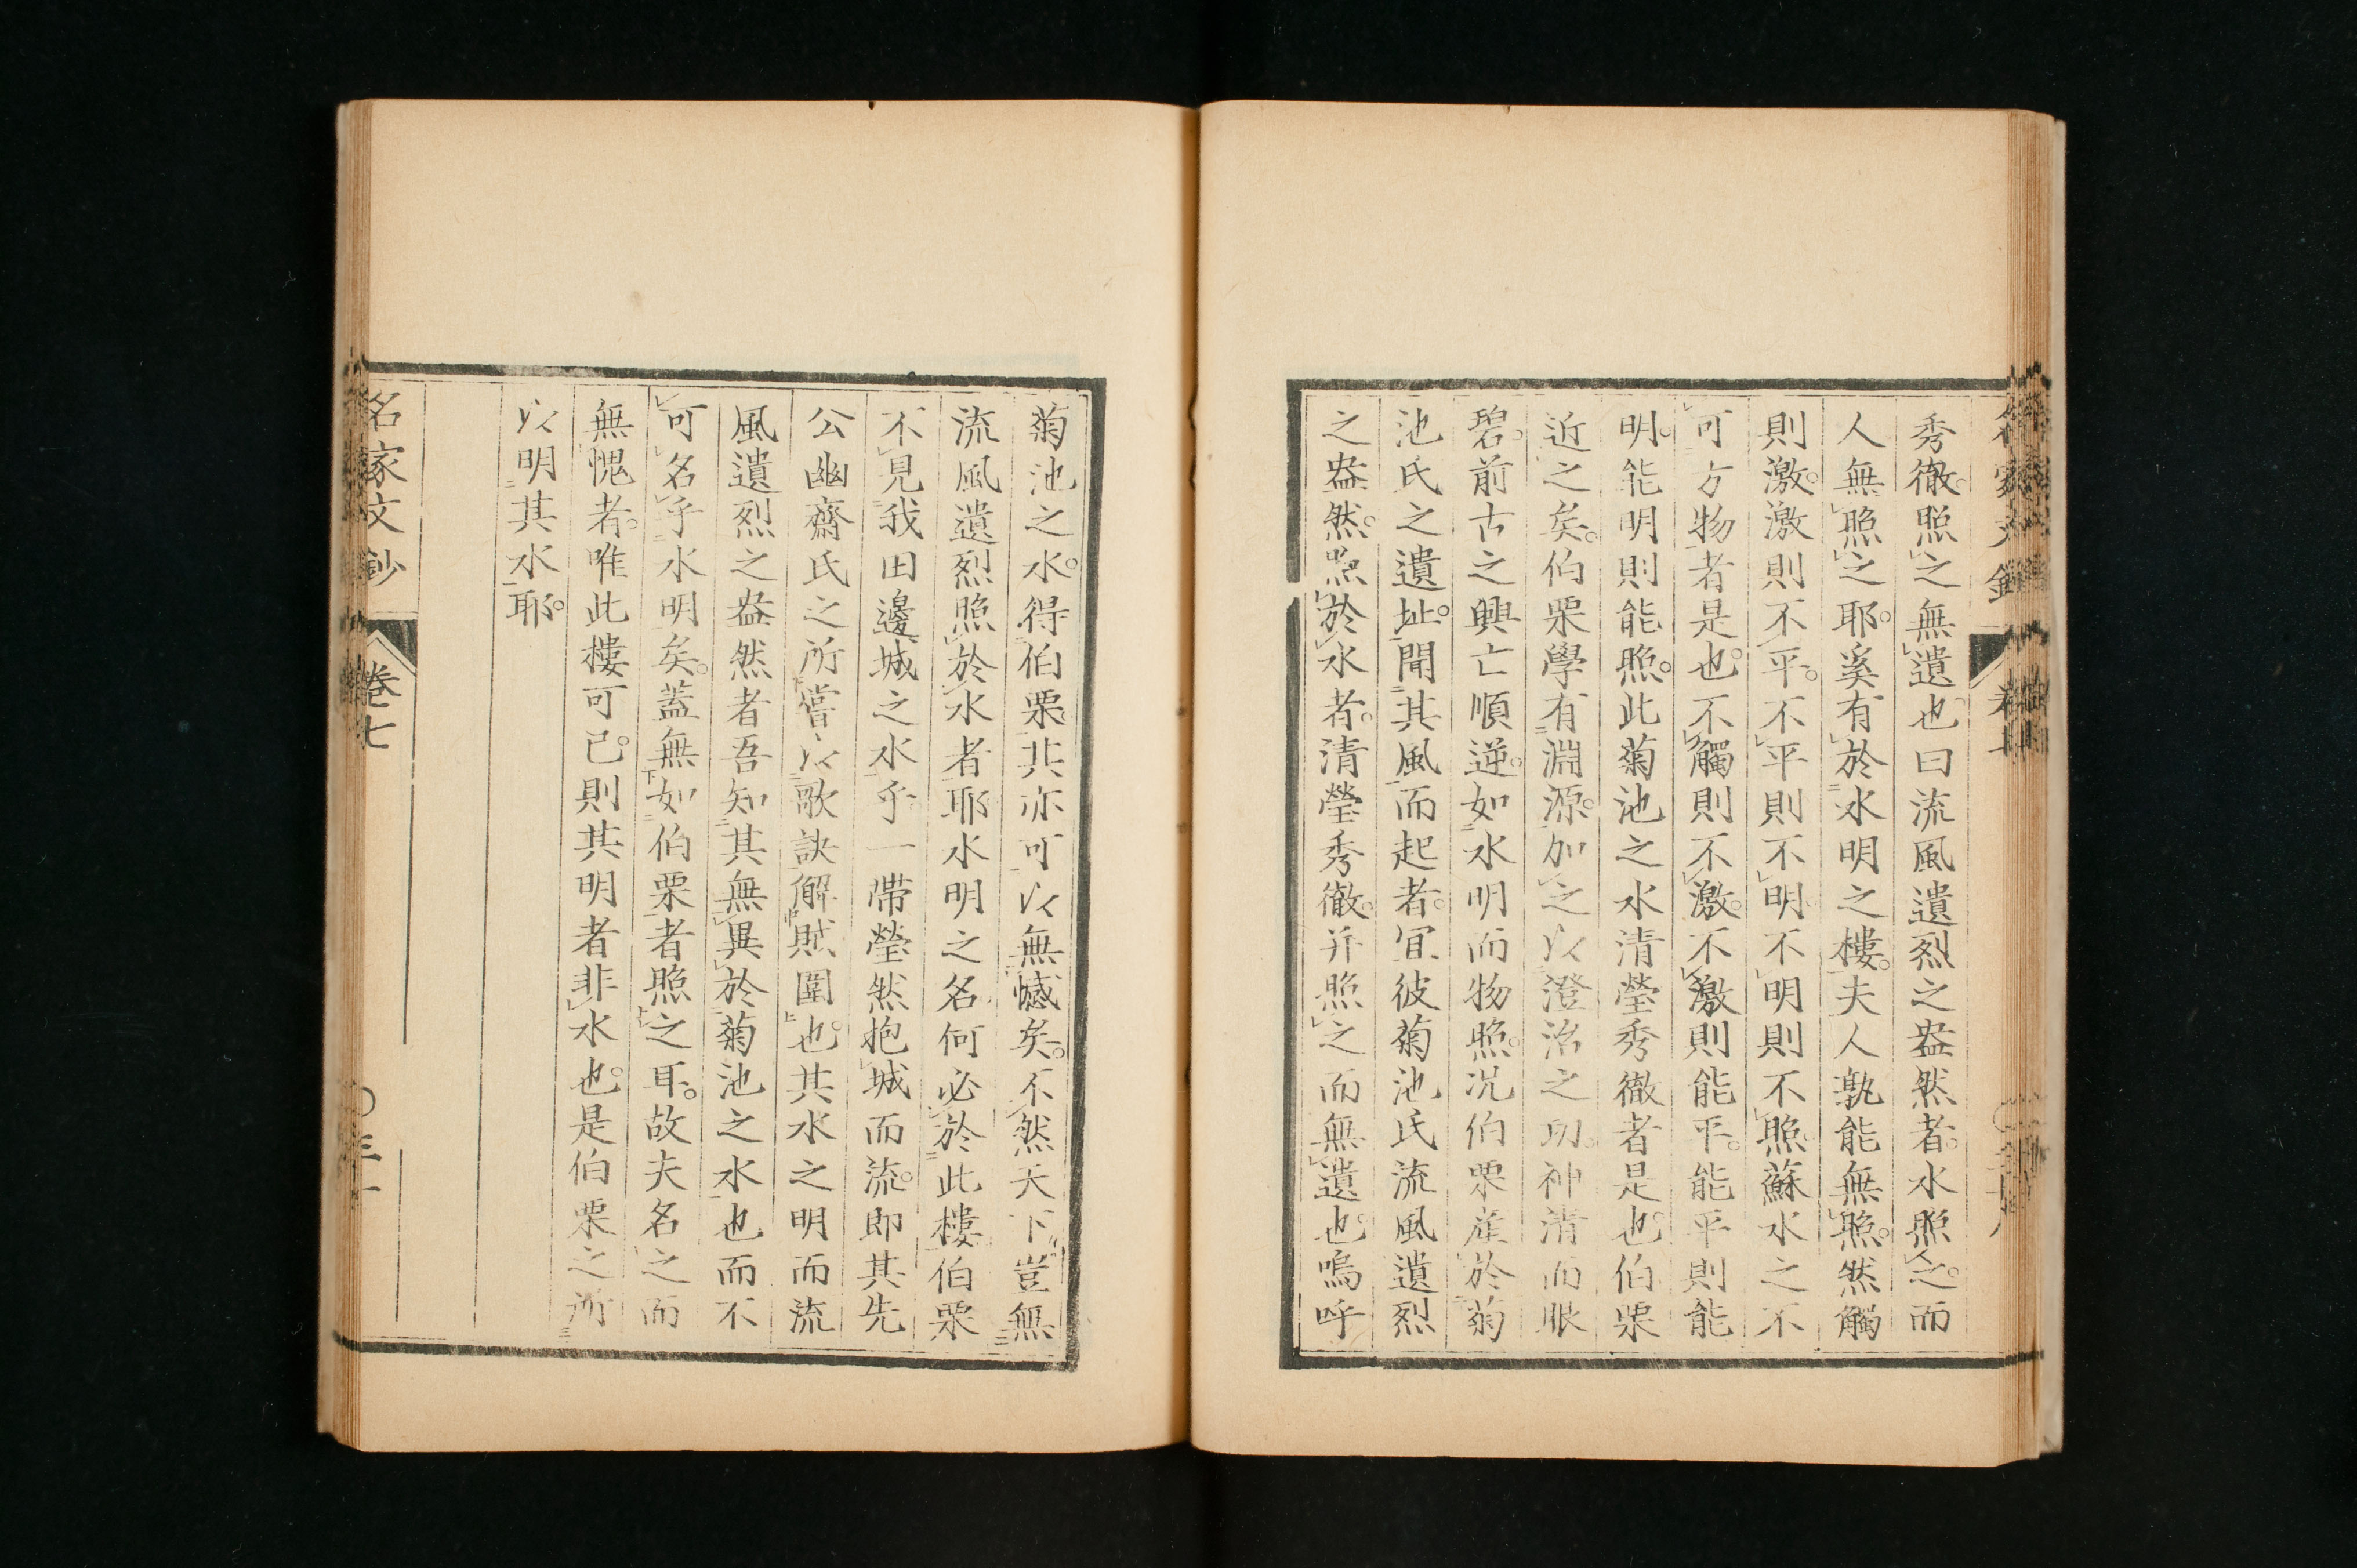 秀徹。照之無遺也。曰流風遺烈之盎然者。水照之。而
人無照之耶。奚有於水明之樓。夫人孰能無照。然觸
則激。激則不平。不平則不明。不明則不照。蘇水之不
可方物者是也。不觸則不激。不激則能平。能平則能
明。能明則能照。此菊池之水清瑩秀徹者是也。伯栗
近之矣。伯栗學有淵源。加之以澄治之功。神清而眼
碧。前古之興亡順逆。如水明而物照。况伯栗產於菊
池氏之遺址。聞其風而起者。宜彼菊池氏流風遺烈
之盎然。照於水者。清瑩秀徹。并照之而無遺也。嗚呼
菊池之水。得伯栗其亦可以無憾矣。不然天下豈無
流風遺烈照於水者耶水明之名何必於此樓伯栗
不見我田邊城之水乎一帶瑩然抱城而流。即其先
公幽齋氏之所嘗以歌訣解賊圍也。其水之明而流
風遺烈之盎然者吾知其無異於菊池之水也而不
可名乎水明矣。蓋無如伯栗者照之耳。故夫名之而
無愧者。唯此樓可已。則其明者非水也。是伯栗之所
以明其水耶。
名家文鈔
卷七
〇三十一